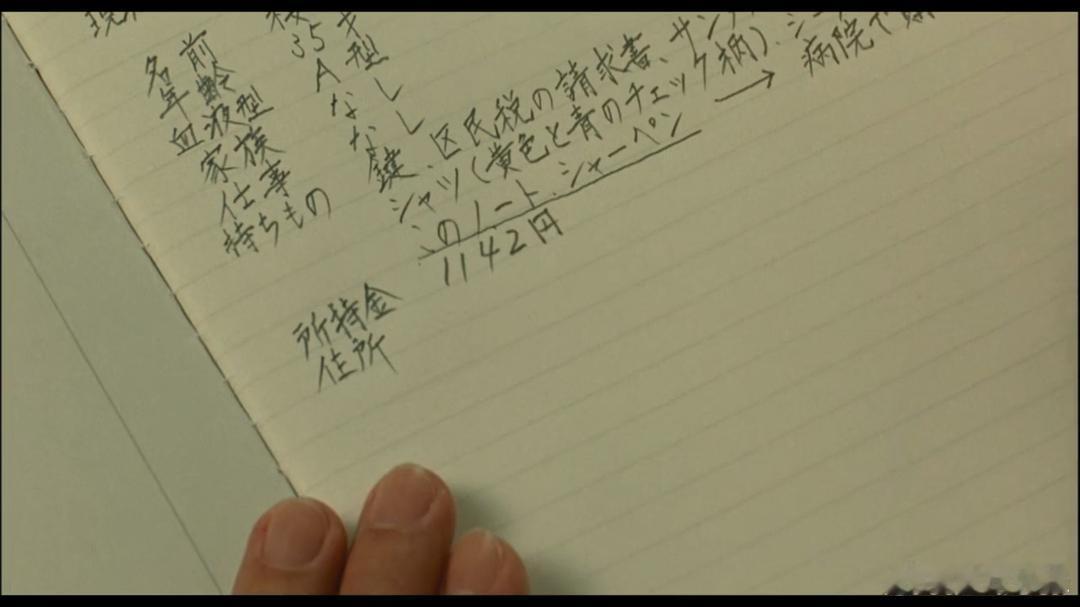 名前 桜
年齢 35才
血液型 A型
家族 なし
仕事 なし
持ちもの 鍵、区民税の請求書、サン
シャツ(黄色と青のチェック柄)、
このノート、シャーペン → 病院で
所持金 1142円
住所